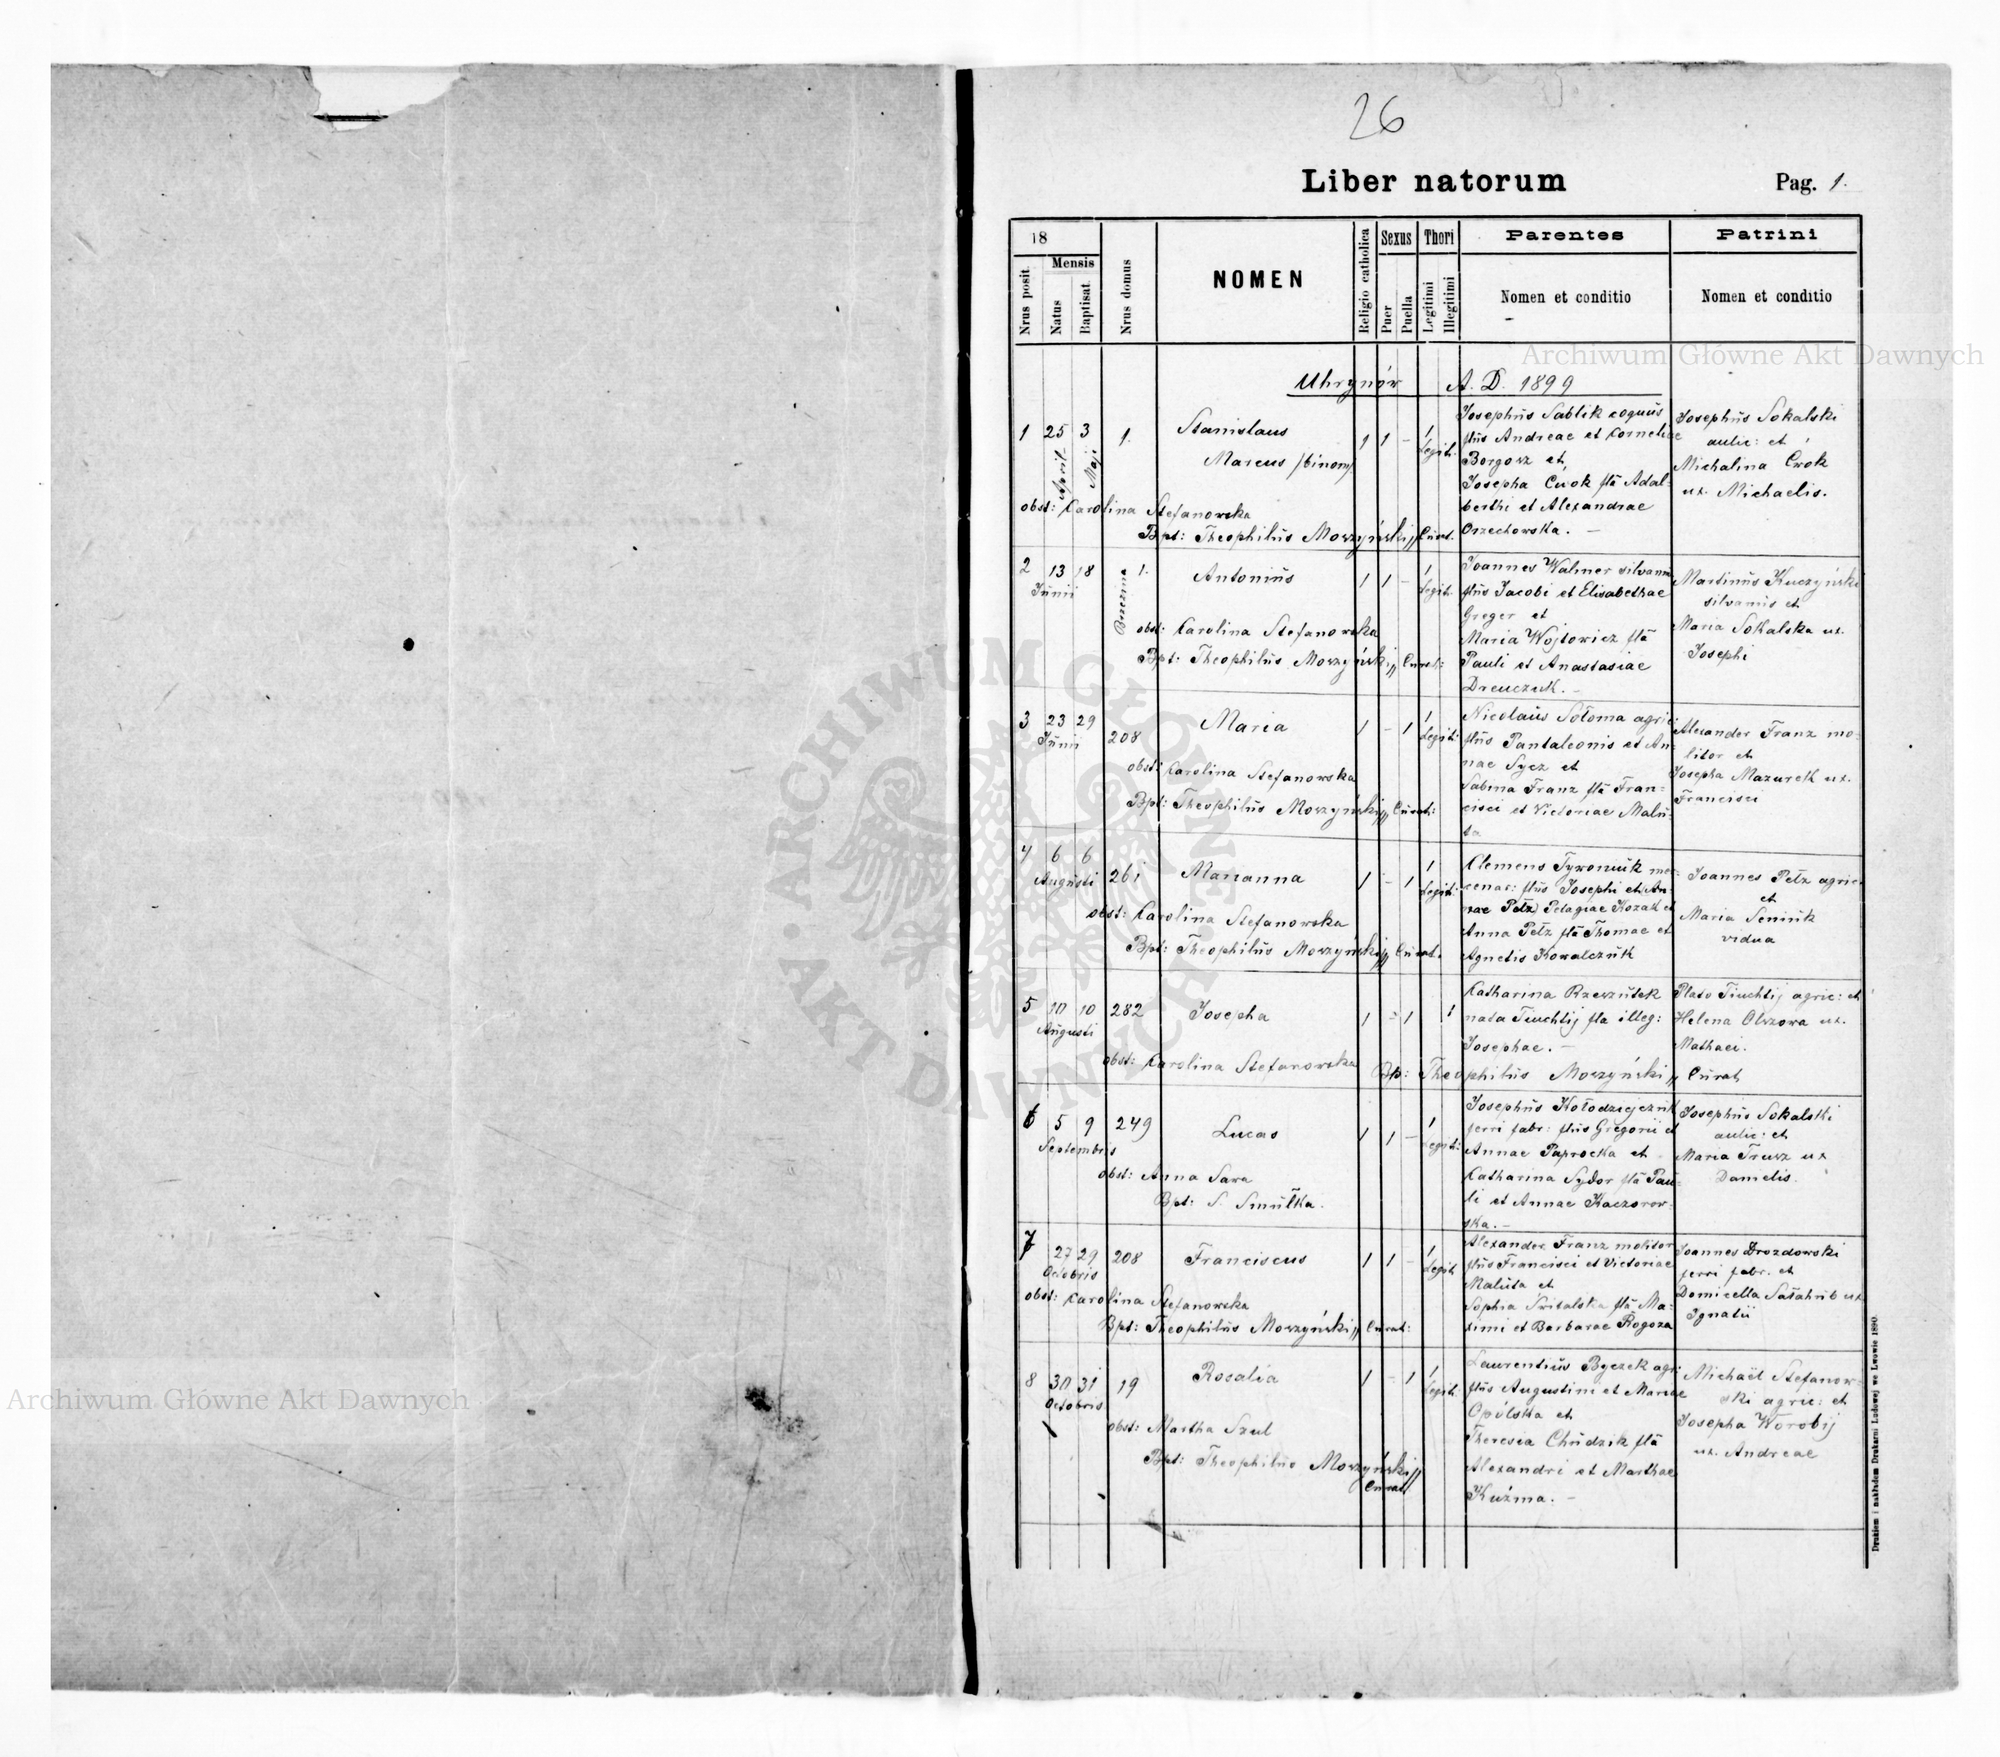 26
Liber natorum
Pag. 1.
18
Mensis
Nrus posit.
Natus
Baptisat.
Nrus domus
NOMEN
Religio catholica
Sexus
Puer
Puella
Thori
Legitimi
Illegitimi
Parentes
Nomen et conditio
Patrini
Nomen et conditio
Uhrynów A. D. 1899
1 25 3 1. Stanislaus 1 1 - 1
April Maj Legit.
Marcus /binom/
obst: Carolina Stefanowska
Bpt: Theophilus Moszyński,, Curat.
Josephus Sablik coquus
flius Andreae et Corneliae
Borgosz et
Josepha Ćwok fla Adal-
berthi et Alexandrae
Orzechowska. –
Josephus Sokalski
aulic: et
Michalina Ćwok
ux. Michaelis.
2 13 18 1. Antonius 1 1 - 1
Junii Legit.
obst: Carolina Stefanowska
Bpt: Theophilus Moszyński,, Curat:
Joannes Walmer silvanus
flius Jacobi et Elisabethae
Greger et
Maria Wojtowicz fla
Pauli et Anastasiae
Drewczuk. –
Martinus Kuczyński
silvanus et
Maria Sokalska ux.
Josephi
3 23 29 208 Maria 1 - 1 1
Junii Legit:
obst: Carolina Stefanowska
Bpt: Theophilus Moszyński,, Curat:
Nicolaus Sołoma agric:
flius Pantaleonis et An-
nae Sycz et
Sabina Franz fla Fran-
cisci et Victoriae Malu-
ta
Alexander Franz mo-
litor et
Josepha Mazurek ux.
Francisci
4 6 6 261 Marianna 1 - 1 1
Augusti Legit:
obst: Carolina Stefanowska
Bpt: Theophilus Moszyński,, Curat.
Clemens Tywoniuk mer-
cenar: flius Josephi et An-
nae Pełz) Pelagiae Kozak et
Anna Pełz fla Thomae et
Agnetis Kowalczuk
Joannes Pełz agric.
et
Maria Seniuk
vidua
5 10 10 282 Josepha 1 - 1 1
Augusti
obst: Carolina Stefanowska
Bp: Theophilus Moszyński,, Curat
Katharina Rzeszutek
nata Tiuchtij fla illeg:
Josephae. –
Plato Tiuchtij agric: et
Helena Olszowa ux.
Mathaei.
6 5 9 249 Lucas 1 1 - 1
Septembris Legit:
obst: Anna Sawa
Bpt: S. Smułka.
Josephus Kołodziejczuk
ferri fabr: flius Gregorii et
Annae Paprocka et
Katharina Sydor fla Pau-
li et Annae Kaczorow-
ska. –
Josephus Sokalski
aulic: et
Maria Trusz ux
Danielis.
7 27 29 208 Franciscus 1 1 - 1
Octobris Legit
obst: Carolina Stefanowska
Bpt: Theophilus Moszyński,, Curat:
Alexander Franz molitor
flius Francisci et Victoriae
Maluta et
Sophia Świtalska fla Ma-
ximi et Barbarae Rogoza
Joannes Drozdowski
ferri fabr. et
Domicella Sałahub ux
Ignatii
8 30 31 19 Rosalia 1 - 1 1
Octobris Legit:
obst: Martha Szul
Bpt: Theophilus Moszyński,,
Curat.
Laurentius Byczek agri
flius Augustini et Mariae
Opólska et
Theresia Chudzik fla
Alexandri et Marthae
Kuźma. –
Michaël Stefanow-
ski agric: et
Josepha Worobij
ux. Andreae
Drukiem i nakładem Drukarni Ludowej we Lwowie 1890.
Archiwum Główne Akt Dawnych
Archiwum Główne Akt Dawnych
ARCHIWUM GŁÓWNE AKT DAWNYCH